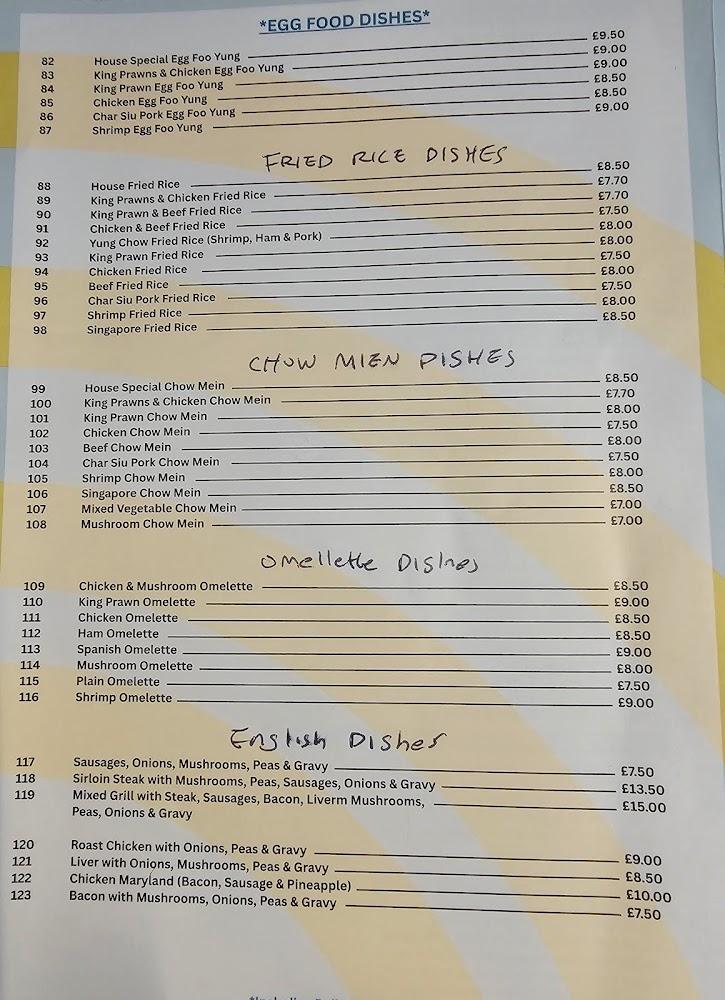 *EGG FOOD DISHES*
82 House Special Egg Foo Yung £9.50
83 King Prawns & Chicken Egg Foo Yung £9.00
84 King Prawn Egg Foo Yung £9.00
85 Chicken Egg Foo Yung £8.50
86 Char Siu Pork Egg Foo Yung £8.50
87 Shrimp Egg Foo Yung £9.00
FRIED RICE DISHES
88 House Fried Rice £8.50
89 King Prawns & Chicken Fried Rice £7.70
90 King Prawn & Beef Fried Rice £7.70
91 Chicken & Beef Fried Rice £7.50
92 Yung Chow Fried Rice (Shrimp, Ham & Pork) £8.00
93 King Prawn Fried Rice £8.00
94 Chicken Fried Rice £7.50
95 Beef Fried Rice £8.00
96 Char Siu Pork Fried Rice £7.50
97 Shrimp Fried Rice £8.00
98 Singapore Fried Rice £8.50
CHOW MIEN DISHES
99 House Special Chow Mein £8.50
100 King Prawns & Chicken Chow Mein £7.70
101 King Prawn Chow Mein £8.00
102 Chicken Chow Mein £7.50
103 Beef Chow Mein £8.00
104 Char Siu Pork Chow Mein £7.50
105 Shrimp Chow Mein £8.00
106 Singapore Chow Mein £8.50
107 Mixed Vegetable Chow Mein £7.00
108 Mushroom Chow Mein £7.00
Omellette Dishes
109 Chicken & Mushroom Omelette £8.50
110 King Prawn Omelette £9.00
111 Chicken Omelette £8.50
112 Ham Omelette £8.50
113 Spanish Omelette £9.00
114 Mushroom Omelette £8.00
115 Plain Omelette £7.50
116 Shrimp Omelette £9.00
English Dishes
117 Sausages, Onions, Mushrooms, Peas & Gravy £7.50
118 Sirloin Steak with Mushrooms, Peas, Sausages, Onions & Gravy £13.50
119 Mixed Grill with Steak, Sausages, Bacon, Liverm Mushrooms, £15.00
Peas, Onions & Gravy
120 Roast Chicken with Onions, Peas & Gravy £9.00
121 Liver with Onions, Mushrooms, Peas & Gravy £8.50
122 Chicken Maryland (Bacon, Sausage & Pineapple) £10.00
123 Bacon with Mushrooms, Onions, Peas & Gravy £7.50